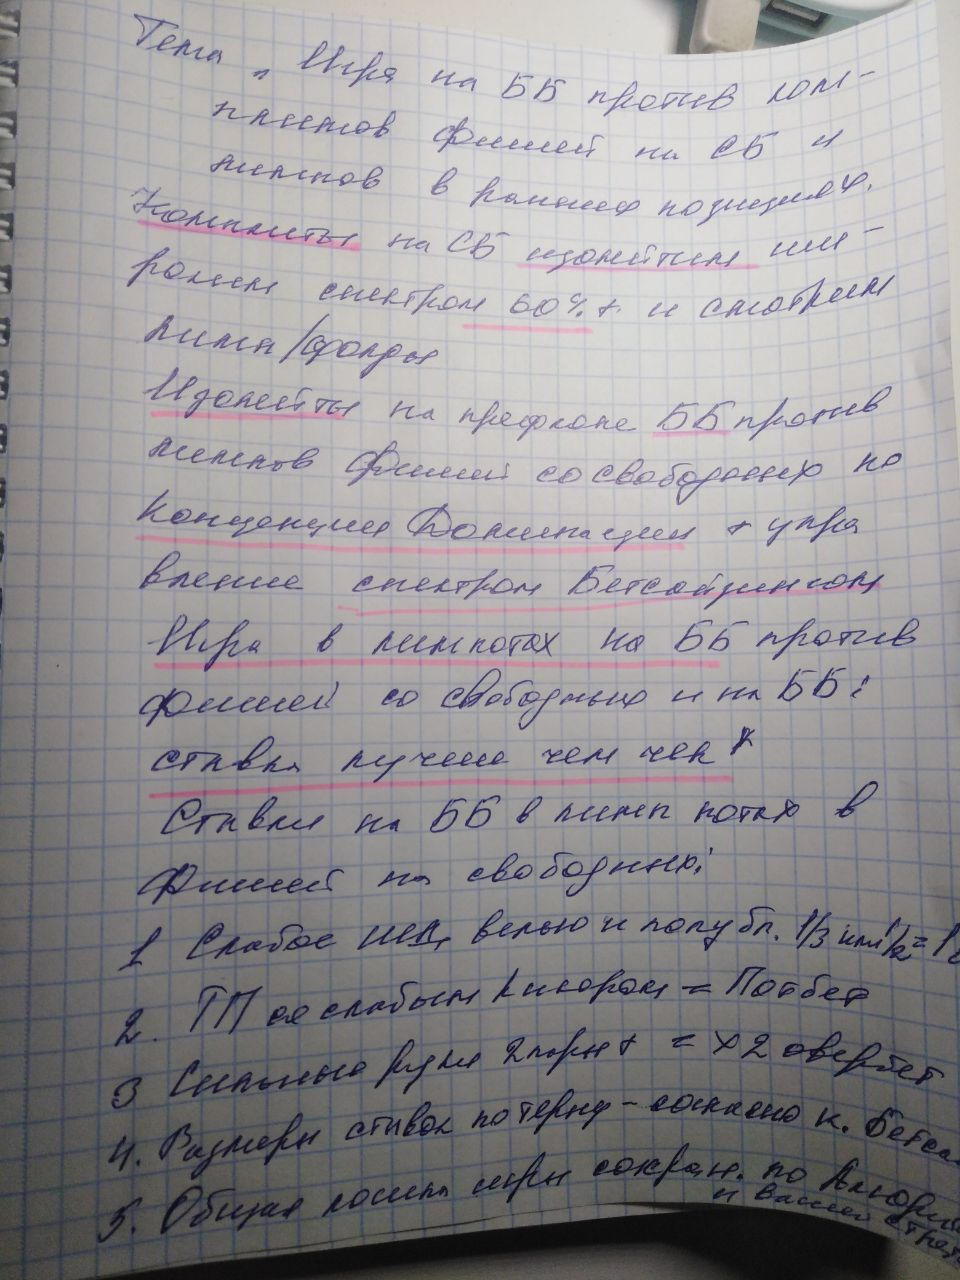 Тема „ Игра на ББ против ком-
плитов фишей на СБ и
лимпов в ранних позициях.
Комплиты на СБ изолейтим ши-
роким спектром 60%+ и смотрим
лимп/фолды
Изолейты на префлопе ББ против
лимпов фишей со свободных по
Концепции Доминации + упра
вление спектром Бетсайзингом
Игра в лимпотах на ББ против
фишей со свободных и на ББ:
ставка лучше чем чек*
Ставки на ББ в лимп потах в
фишей на свободных:
1 Слабое ШД, велью и полубл. 1/3 или 1/2 =
2. ТП со слабым кикером = Потбет
3 Сильные руки 2пары+ = х2 овербет
4. Размеры ставок по терну - согласно к.
5. Общая логика игры сохран. по
и вашей